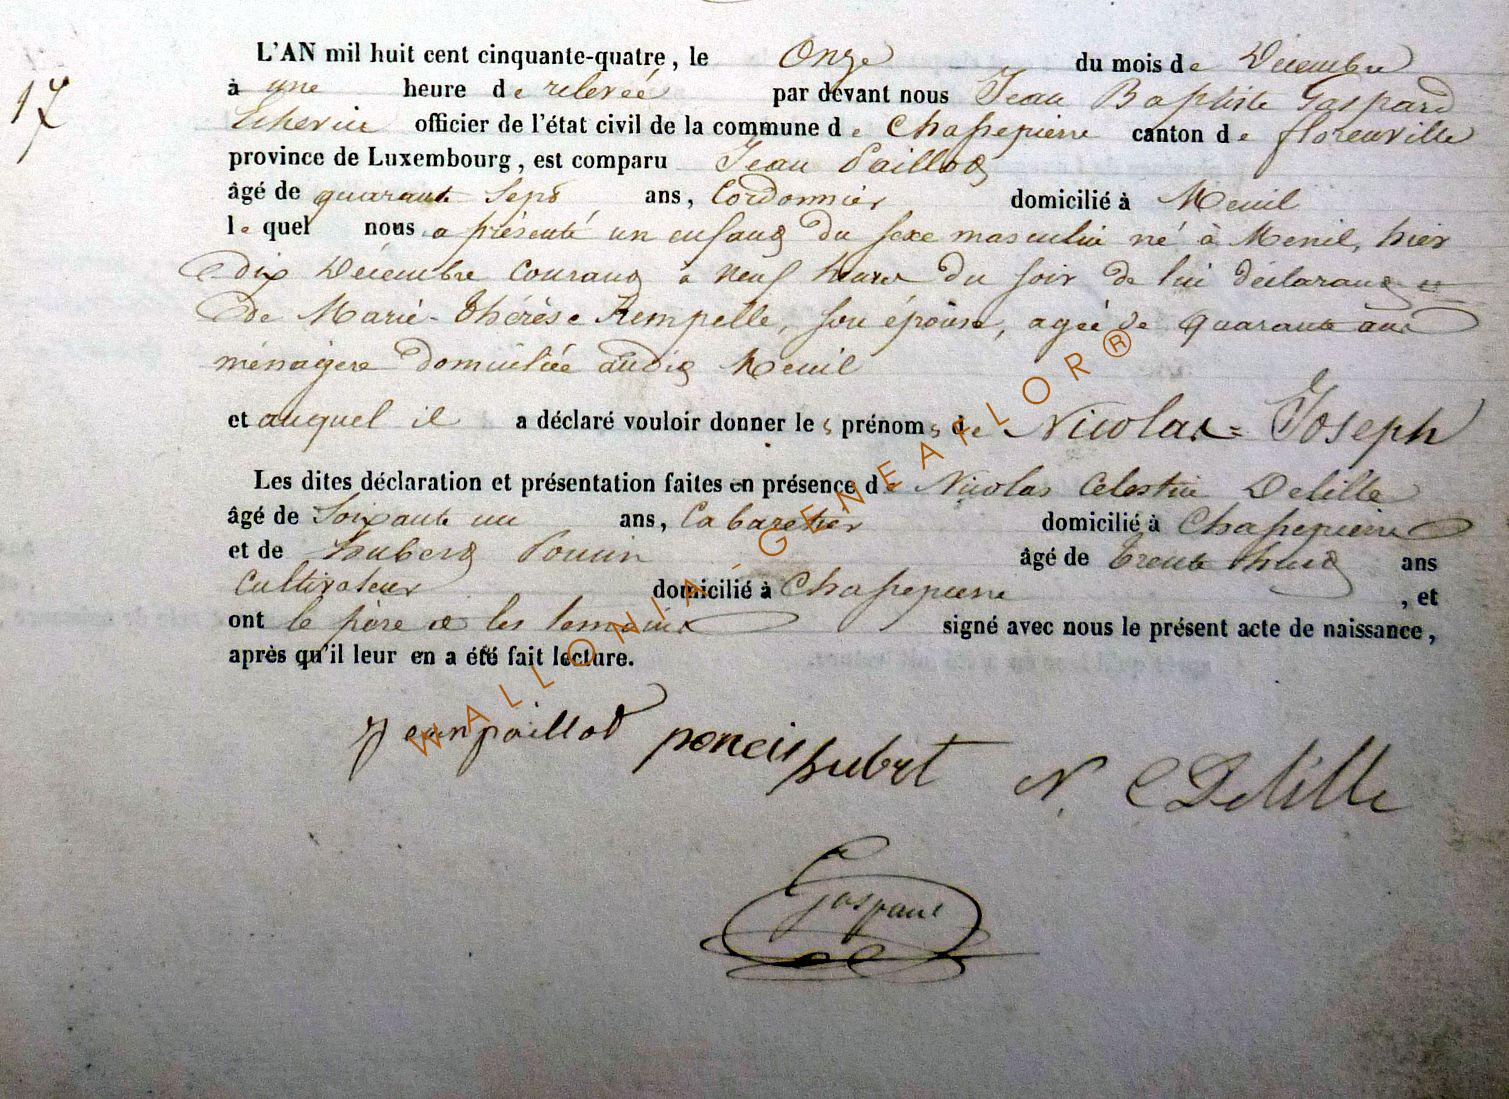 17
L'AN mil huit cent cinquante-quatre, le Onze du mois de Décembre
à une heure de relevée par devant nous Jean Baptiste Gaspard
officier de l'état civil de la commune de Chassepierre canton de florenville
province de Luxembourg, est comparu Jean Paillot
âgé de quarante sept ans, Cordonnier domicilié à Menil
lequel nous a présenté un enfant du sexe masculin né à Menil, hier
dix Décembre courant à neuf heures du soir de lui déclarant et
de Marie-Thérèse Rempelle, son épouse, agée de quarante ans
ménagère domiciliée audit Menil
et auquel il a déclaré vouloir donner les prénoms de Nicolas-Joseph
Les dites déclaration et présentation faites en présence de Nicolas Celestin Delille
âgé de Soixante un ans, Cabaretier domicilié à Chassepierre
et de hubert Poncin âgé de trente huit ans
Cultivateur domicilié à Chassepierre, et
ont le père et les temoins signé avec nous le présent acte de naissance,
après qu'il leur en a été fait lecture.
Jean paillot poncin hubert N. C Delille
Gaspard
WALLONIA GENEALOR®